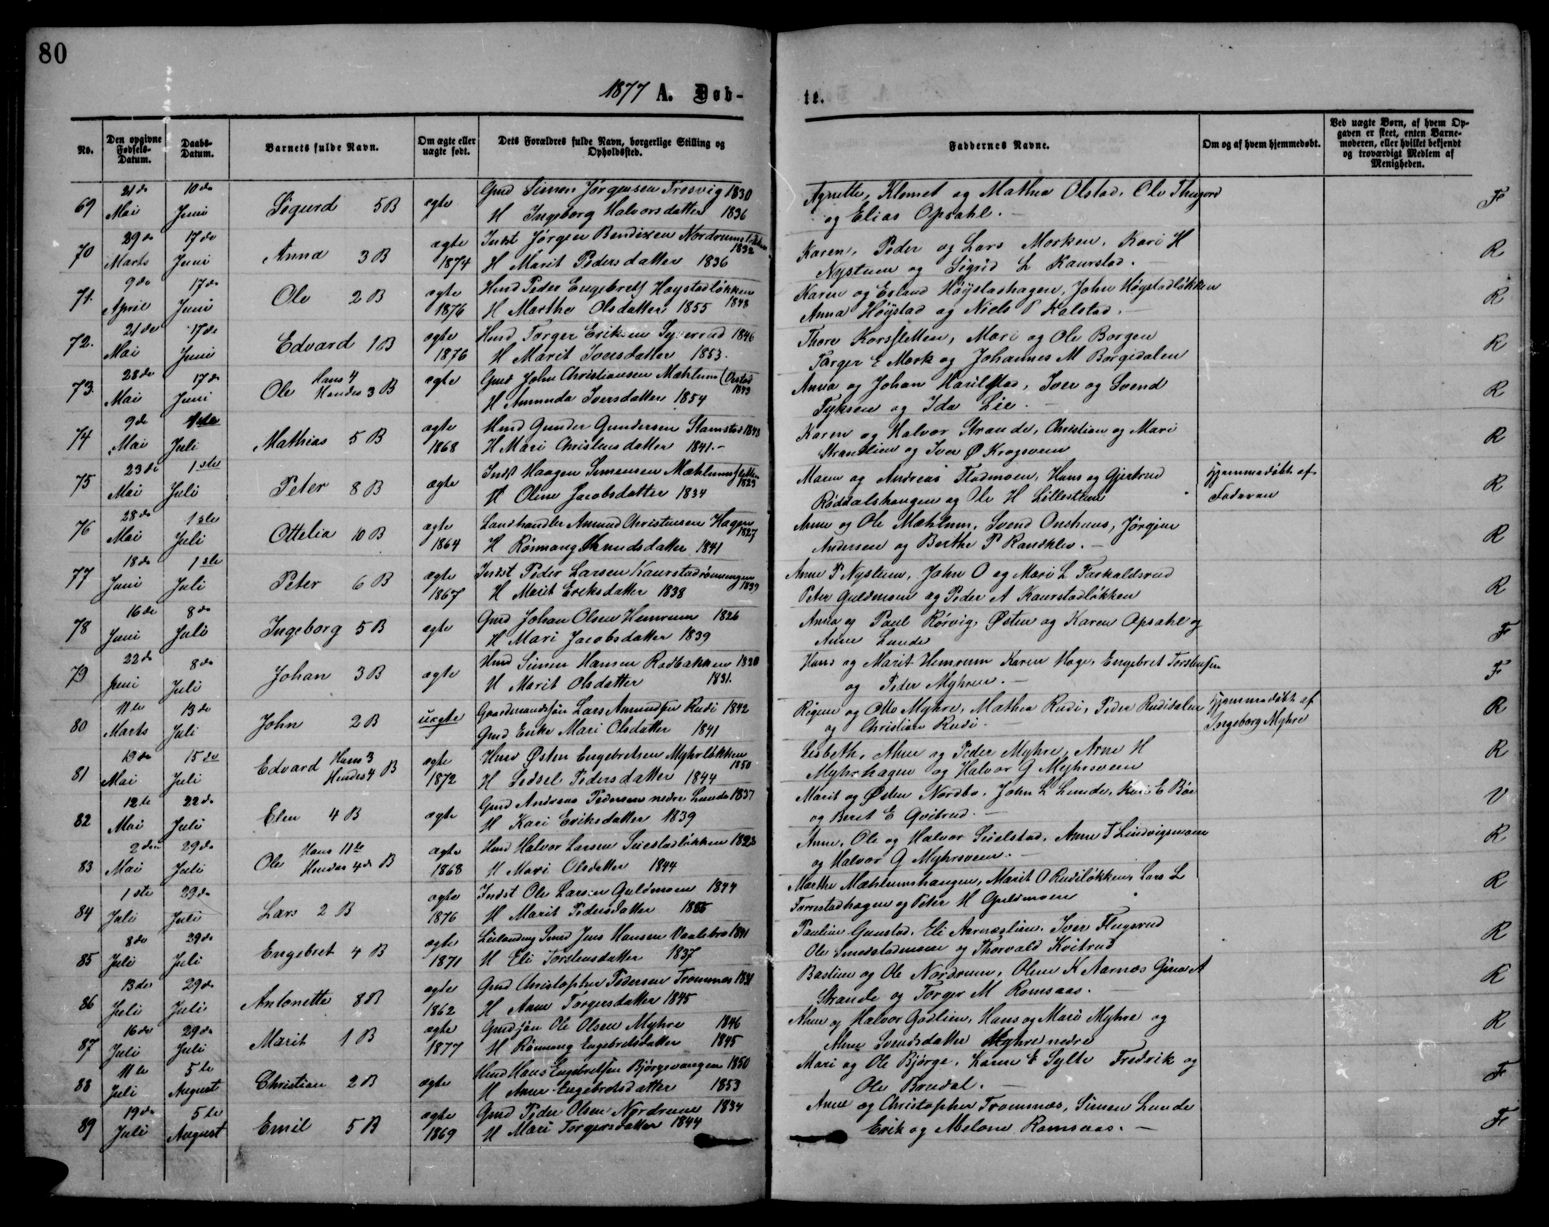 80
1877 A. Døb-
te.
No.
Den opgivne Fødsels-Datum.
Daabs-Datum.
Barnets fulde Navn.
Om ægte eller uægte født.
Dets Forældres fulde Navn, borgerlige Stilling og Opholdssted.
Faddernes Navne.
Om og af hvem hjemmedøbt.
Ved uægte Børn, af hvem Opgaven er skeet, enten Barnemoderen, eller hvilket bekjendt og troværdigt Medlem af Menigheden.
69 21de Mai 10de Juni Sigurd 5B ægte Gmd Simen Jørgensen Frosvig 1830
H Ingeborg Halvorsdatter 1836
Agnethe, Klemet og Mathea Olstad, Ole
og Elias Opsahl. F
70 29de Marts 17de Juni Anna 3B ægte 1874 Indst Jørgen Bendixen 1832
H Marit Pedersdatter 1836
Karen, Peder og Lars Morken, Kari H
Nystuen og Sigrid L Kaurstad. R
71. 9de April 17de Juni Ole 2B ægte 1876 Hmd Peder Engebrets Høystadløkken 1848
H Marthe Olsdatter 1855
Karen og Erland Høystadhagen, John Høystadløkken
Anna Høystad og Niels P Kalstad. R
72. 21de Mai 17de Juni Edvard 1B ægte 1876 Hmd Torger Eriksen 1846
H Marit Iversdatter 1853.
Thore Korsfletten, Mari og Ole Borgen
Torger E Mork og Johannes M Borgedalen R
73. 28de Mai 17de Juni Ole Hans 4 Hendes 3 B ægte Gmd John Christiansen Mæhlum 1843
H Amunda Iversdatter 1854
Anna og Johan Iver og Svend
og Ida Lie. R
74 9de Mai 1ste Juli Mathias 5B ægte 1868 Hmd Gunder Gundersen Stamstad 1843
H Mari Christensdatter 1841.
Karen og Halvor Strande, Christian og Mari
Strandlien og Iver Ø Krogsveen R
75 23de Mai 1ste Juli Peter 8B ægte Indst Haagen Simensen 1823
H Oline Jacobsdatter 1834
Maren og Andreas Hans og Gjertrud
og Ole H Lillestuen
Hjemmedøbt af Faderen R
76 28de Mai 1ste Juli Ottelia 10B ægte 1864 Landhandler Amund Christensen Hagen 1827
H Rønnaug Knudsdatter 1841
Anne og Ole Mæhlum, Svend Onshuus, Jørgine
Andersen og Berthe P Randklev. R
77 18de Juni 1ste Juli Peter 6B ægte 1867 Indst Peder Larsen 1839
H Marit Eriksdatter 1838
Anne P Nystuen, John O og Mari L
Peter Guldmoen og Peder A Kaurstadløkken R
78 16de Juni 8de Juli Ingeborg 5B ægte Gmd Johan Olsen Hemrum 1826
H Mari Jacobsdatter 1839
Anna og Paul Rørvig, Østen og Karen Opsahl og
Anne Lunde F
79 22de Juni 8de Juli Johan 3B ægte Hmd Simen Hansen Rodbakken 1820
H Marit Olsdatter 1831.
Hans og Marit Hemrum Karen Hage, Engebret Torstensen
og Peder Myhren. F
80 11te Marts 13de Juli John 2B uægte Gaardmandsøn Lars Amundsen Rudi 1842
Gmd Enke Mari Olsdatter 1841
og Otto Myhre, Mathea Rudi, Peder Rudidalen
og Christian Rudi.
Hjemmedøbt af Ingeborg Myhre R
81 13de Mai 15de Juli Edvard Hans 3 Hendes 4 B ægte 1872 Hmd Østen Engebretsen Myhrløkken 1850
H Sidsel Pedersdatter 1844
Lisbeth, Anne og Peder Myhre, Arne H
Myhrhagen og Halvor G Myhrsveen R
82 12te Mai 22de Juli Elen 4B ægte Gmd Andreas Pedersen nedre Lunde 1837
H Kari Eriksdatter 1839
Marit og Østen Nordbo, John L Lunde, Kari E Bøe
og Beret E Qvitrud. V
83 2den Mai 29de Juli Ole Hans 11te Hendes 4de B ægte 1868 Hmd Halvor Larsen Seiestadløkken 1823
H Mari Olsdatter 1844
Anne, Ole og Halvor Seielstad, Anne T Lindvigsmoen
og Halvor G Myhrsveen. R
84 1ste Juli 29de Juli Lars 2B ægte 1876 Indst Ole Larsen Guldmoen 1844
H Marit Pedersdatter 1855
Marthe Mæhlumshaugen, Marit O Rudiløkken, Lars L
og Peter H Guldmoen R
85 8de Juli 29de Juli Engebret 4B ægte 1871 Smed Jens Hansen 1841
H Eli Torstensdatter 1837
Pauline Gunstad, Eli Aarnæslien, Iver
Ole Smedstadmoen og Thorvald Kvitrud R
86 13de Juli 29de Juli Antonette 8B ægte 1862 Gmd Christopher Pedersen Tromnæs 1831
H Anne Torgersdatter 1845
Bastian og Ole Nordrum, Oline K Aarnæs Gina A
Strande og Torger M Romsaas. R
87 16de Juli 29de Juli Marit 1B ægte 1877 Gmdsøn Ole Olsen Myhre 1846
H Rønnaug Engebretsdatter 1845
Anne og Halvor Godlien, Hans og Mari Myhre og
Anne Svendsdatter Myhre nedre R
88 11te Juli 5te August Christian 2B ægte Hmd Hans Engebretsen Bjørgevangen 1850
H Anne Engebretsdatter 1853
Mari og Ole Bjørge, Karen E Sylte Fredrik og
Ole Brudal. F
89 19de Juli 5te August Emil 5B ægte 1869 Gmd Peder Olsen Nordrum 1834
H Mari Torgersdatter 1844
Anne og Christopher Tromnæs, Simen Lunde
Erik og Melone Romsaas. F